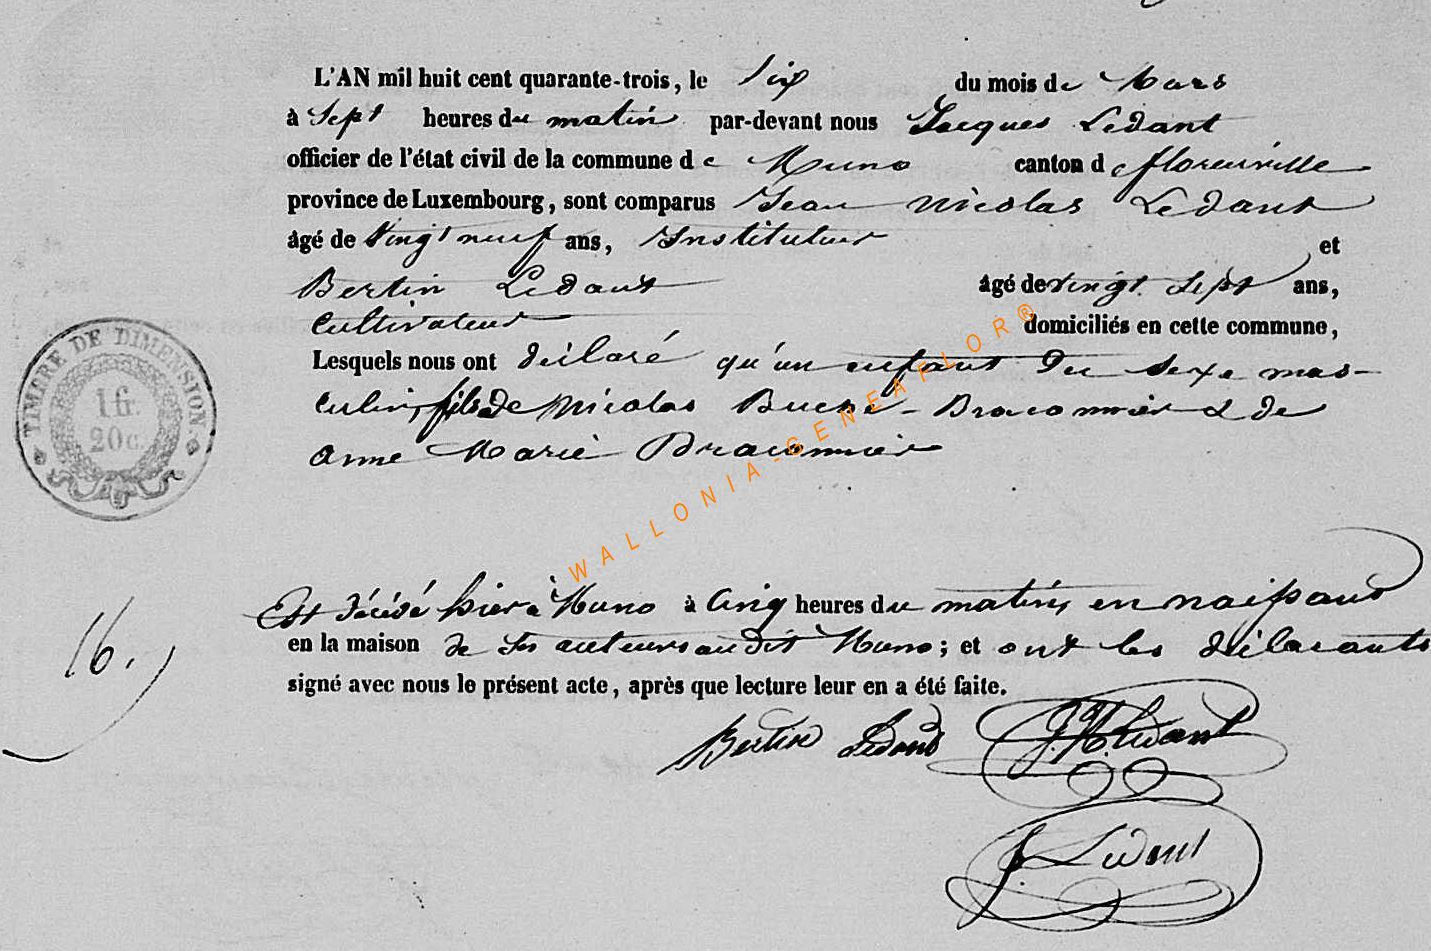 L'AN mil huit cent quarante-trois, le Six du mois de Mars
à Sept heures du matin par-devant nous Jacques Ledant
officier de l'état civil de la commune de Muno canton de florenville
province de Luxembourg, sont comparus Jean Nicolas Ledant
âgé de vingt neuf ans, Instituteur et
Bertin Ledant âgé de vingt Sept ans,
Cultivateur domiciliés en cette commune,
Lesquels nous ont déclaré qu'un enfant du sexe mas-
culin, fils de Nicolas - Braconnier & de
anne Marie Braconnier
Est décédé hier à Muno à Cinq heures du matin, en naissant
en la maison de ses auteurs audit Muno; et ont les déclarants
signé avec nous le présent acte, après que lecture leur en a été faite.
Bertin Ledant J. N. Ledant
J. Ledant
16.
TIMBRE DE DIMENSION.
1 fr.
20 c.
WALLONIA-GENEAFLOR®